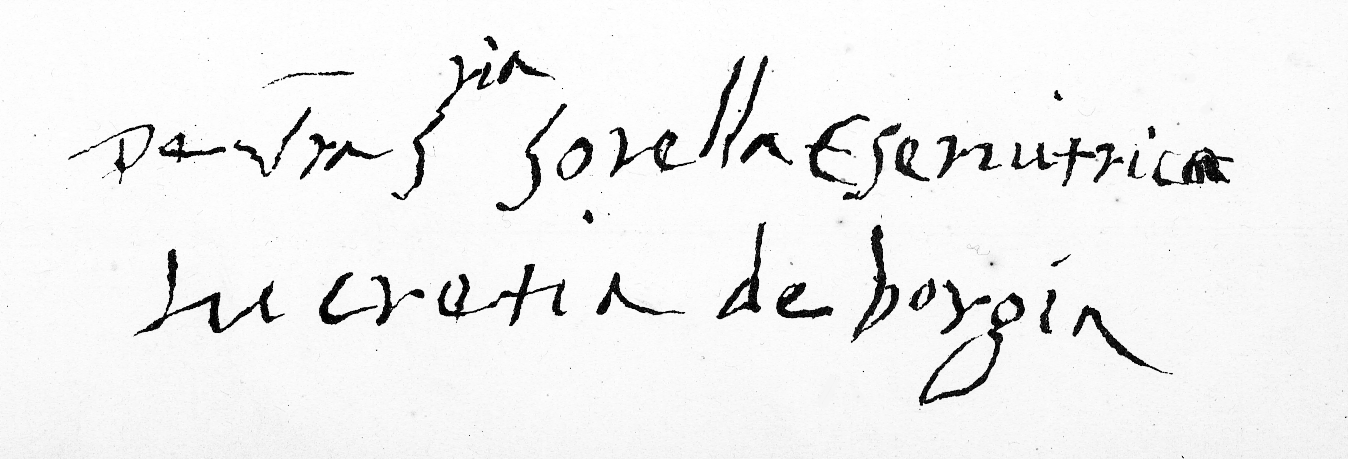 De vra S ria sorella E servitrica
Lucretia de borgia